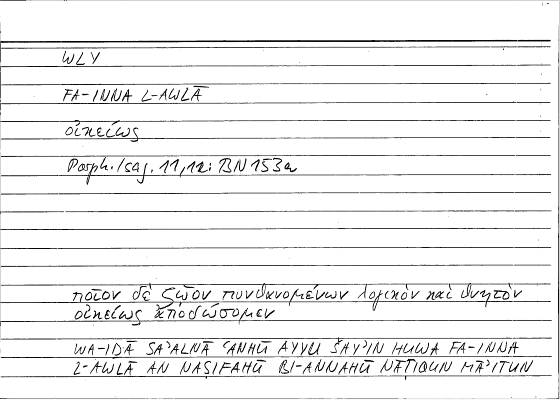 WLY
FA-INNA L-AWLĀ
οἰκείως
Porph. Isag. 11,12: BN 153a
ποῖον δὲ ζῷον πυνθανομένων λογικὸν καὶ θνητὸν
οἰκείως ἀποδώσομεν
WA-IḎĀ SAʾALNĀ ʿANHŪ AYYU ŠAYʾIN HUWA FA-INNA
L-AWLĀ AN NAṢIFAHŪ BI-ANNAHŪ NĀṬIQUN MĀʾITUN